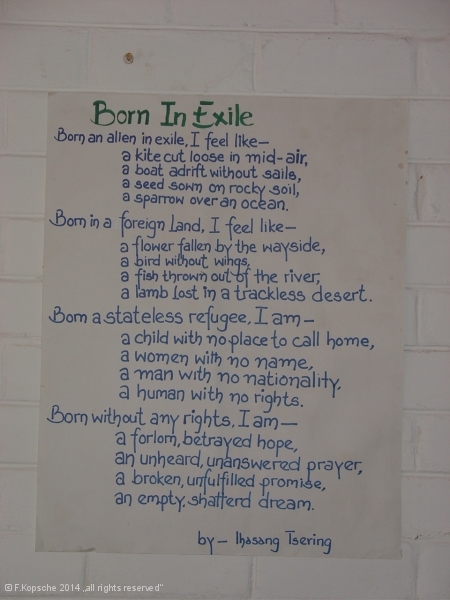 Born In Exile
Born an alien in exile, I feel like—
a kite cut loose in mid-air,
a boat adrift without sails,
a seed sown on rocky soil,
a sparrow over an ocean.
Born in a foreign land, I feel like—
a flower fallen by the wayside,
a bird without wings,
a fish thrown out of the river,
a lamb lost in a trackless desert.
Born a stateless refugee, I am—
a child with no place to call home,
a women with no name,
a man with no nationality.
a human with no rights.
Born without any rights, I am—
a forlorn, betrayed hope,
an unheard, unanswered prayer,
a broken, unfulfilled promise,
an empty, shatterd dream.
by— Lhasang Tsering
© F.Kopsche 2014 „all rights reserved"